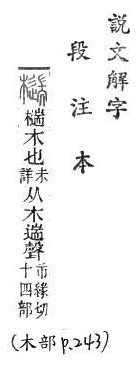 説文解字
段注本
木也未詳从木遄聲市緣切十四部
(木部 p.243)